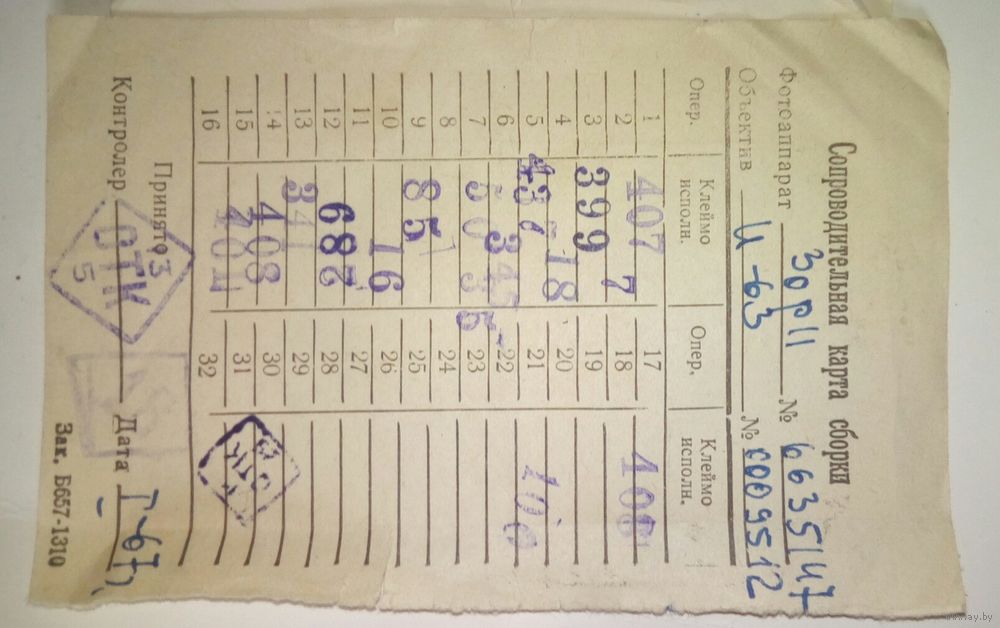 Сопроводительная карта сборки
Фотоаппарат № 6635147
Объектив И-63 № 0009512
Опер. Клеймо исполн. Опер. Клеймо исполн.
1 407 17
2 7 18
3 399 19
4 18 20
5 437 21
6 345 22
7 23
8 24
9 85 25
10 16 26
11 27
12 687 28
13 34 29
14 408 30
15 401 31
16 32
Принято
Контролер ОТК 5 Дата
Зак. Б657-1310